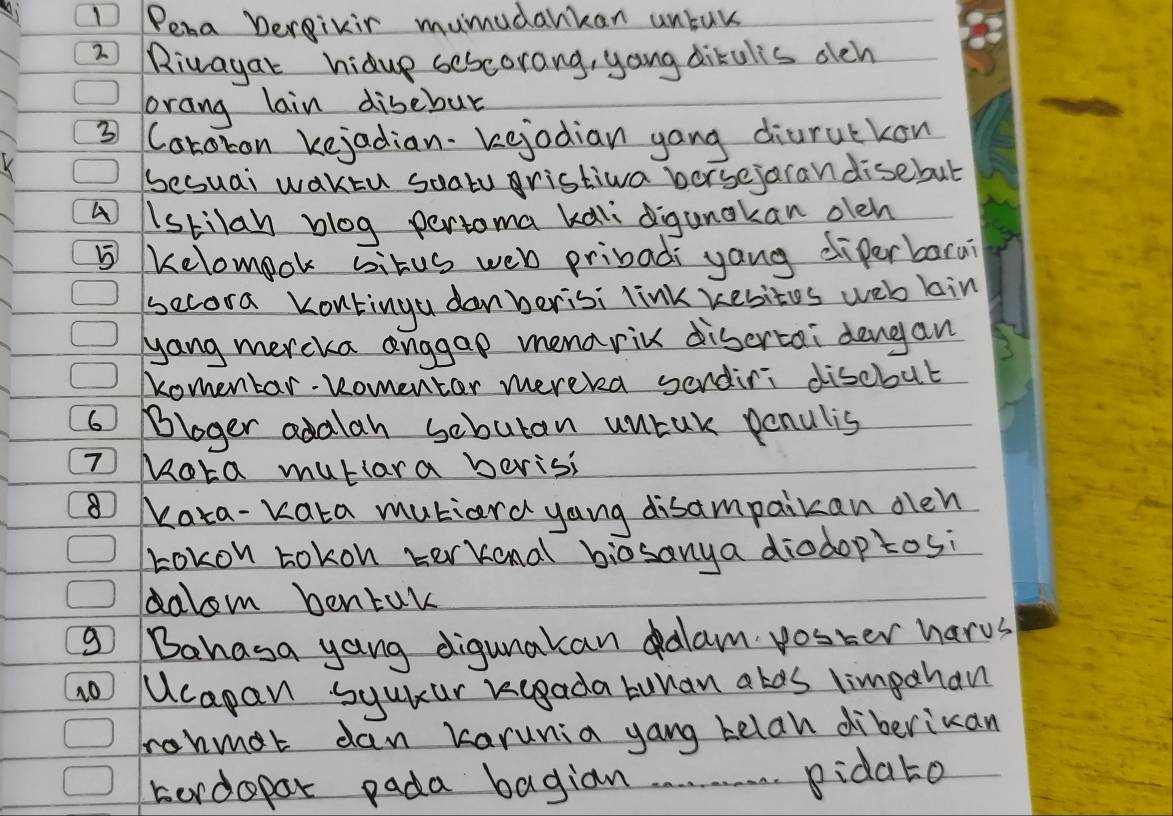 1 Pera berpikir mumudahkan untuk
2 Riwayat hidup seseorang, yang ditulis oleh
orang lain disebut
3 Catatan kejadian-kejadian yang diurutkan
sesuai waktu suatu pristiwa bersejarah disebut
4 Istilah blog pertama kali digunakan oleh
5 Kelompok situs web pribadi yang diperbarui
secara kontinyu dan berisi link kesitus web lain
yang mereka anggap menarik disertai dengan
komentar-komentar mereka sendiri disebut
6 Bloger adalah sebutan untuk penulis
7 Kata mutiara berisi
8 Kata-kata mutiara yang disampaikan oleh
tokoh tokoh terkenal biasanya diadoptasi
dalam bentuk
9 Bahasa yang digunakan dalam poster harus
10 Ucapan syukur kepada tuhan atas limpahan
rahmat dan karunia yang telah diberikan
terdapat pada bagian .......... pidato